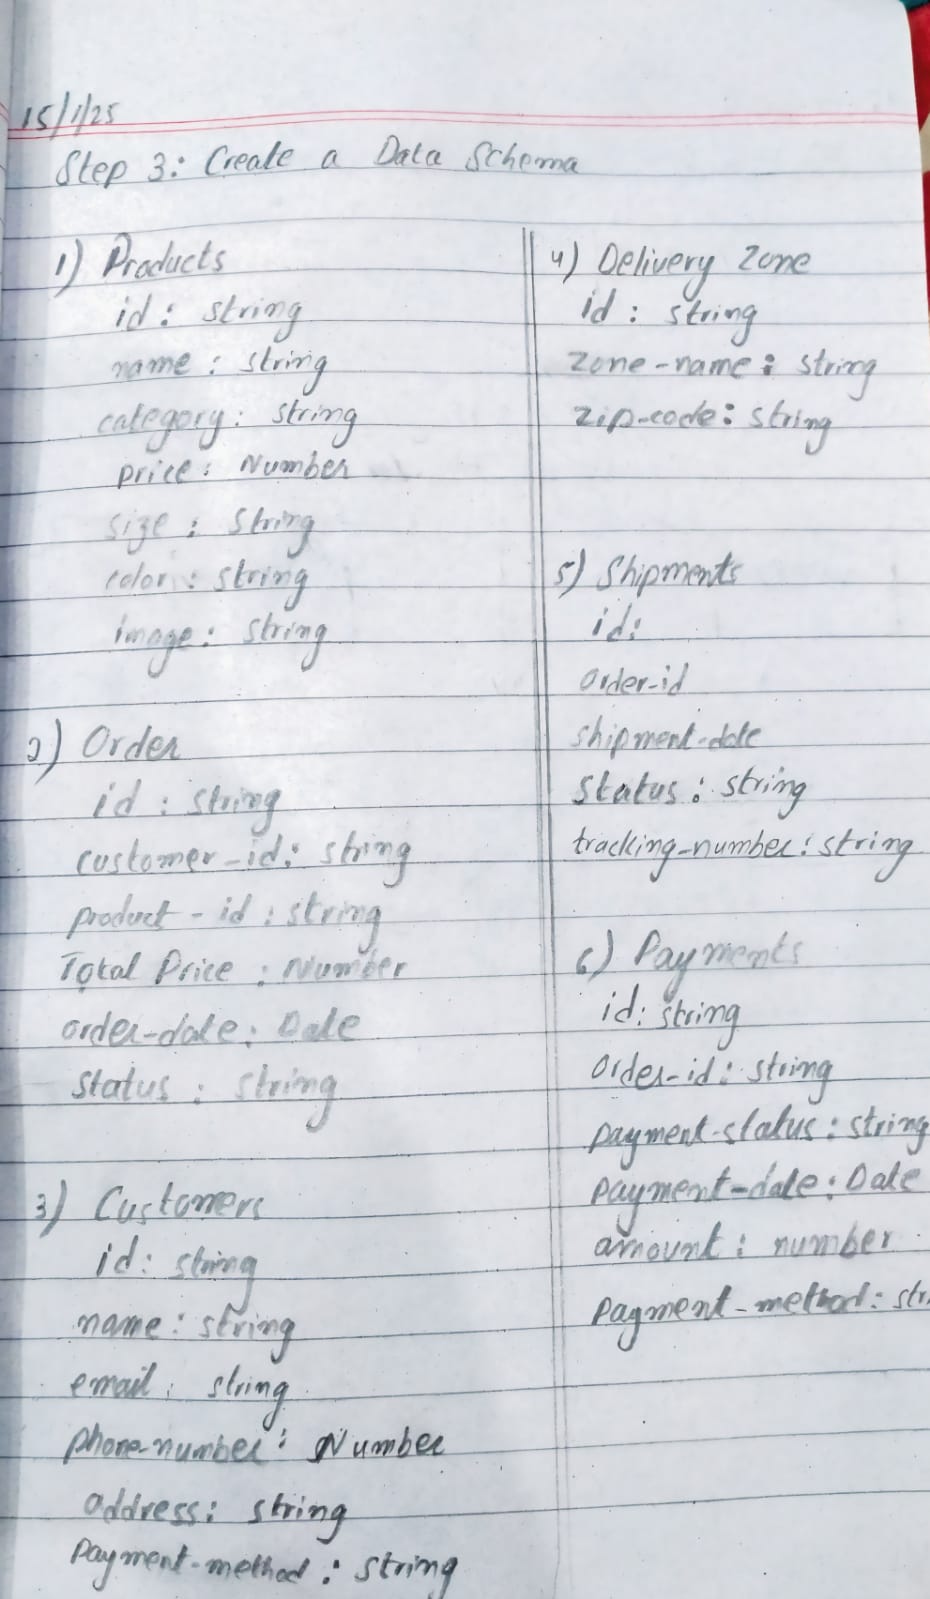 15/1/25
Step 3: Create a Data Schema
1) Products
id: string
name: string
category: string
price: Number
size: string
color: string
image: string
2) Order
id: string
customer-id: string
product-id: string
Total Price: Number
order-date: Date
status: string
3) Customers
id: string
name: string
email: string
phone-number: Number
address: string
Payment-method: string
4) Delivery Zone
id: string
zone-name: string
zip-code: string
5) Shipments
id:
order-id
shipment-date
status: string
tracking-number: string
6) Payments
id: string
order-id: string
payment-status: string
payment-date: Date
amount: number
payment-method: str